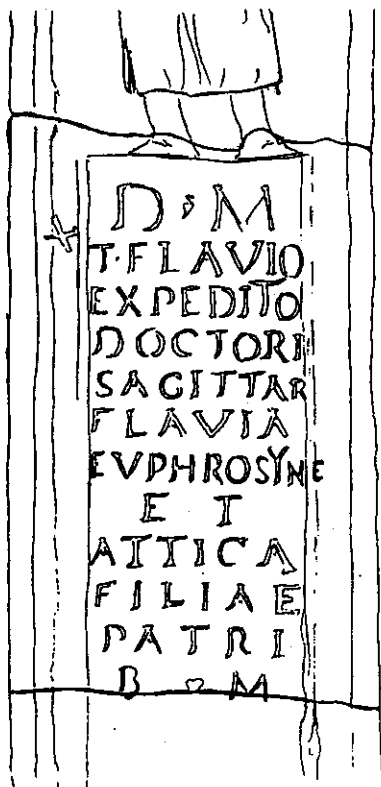 D · M
T · FLAVIO
EXPEDITO
DOCTORI
SAGITTAR
FLAVIA
EVPHROSYNE
E T
ATTICA
FILIAE
PATRI
B M